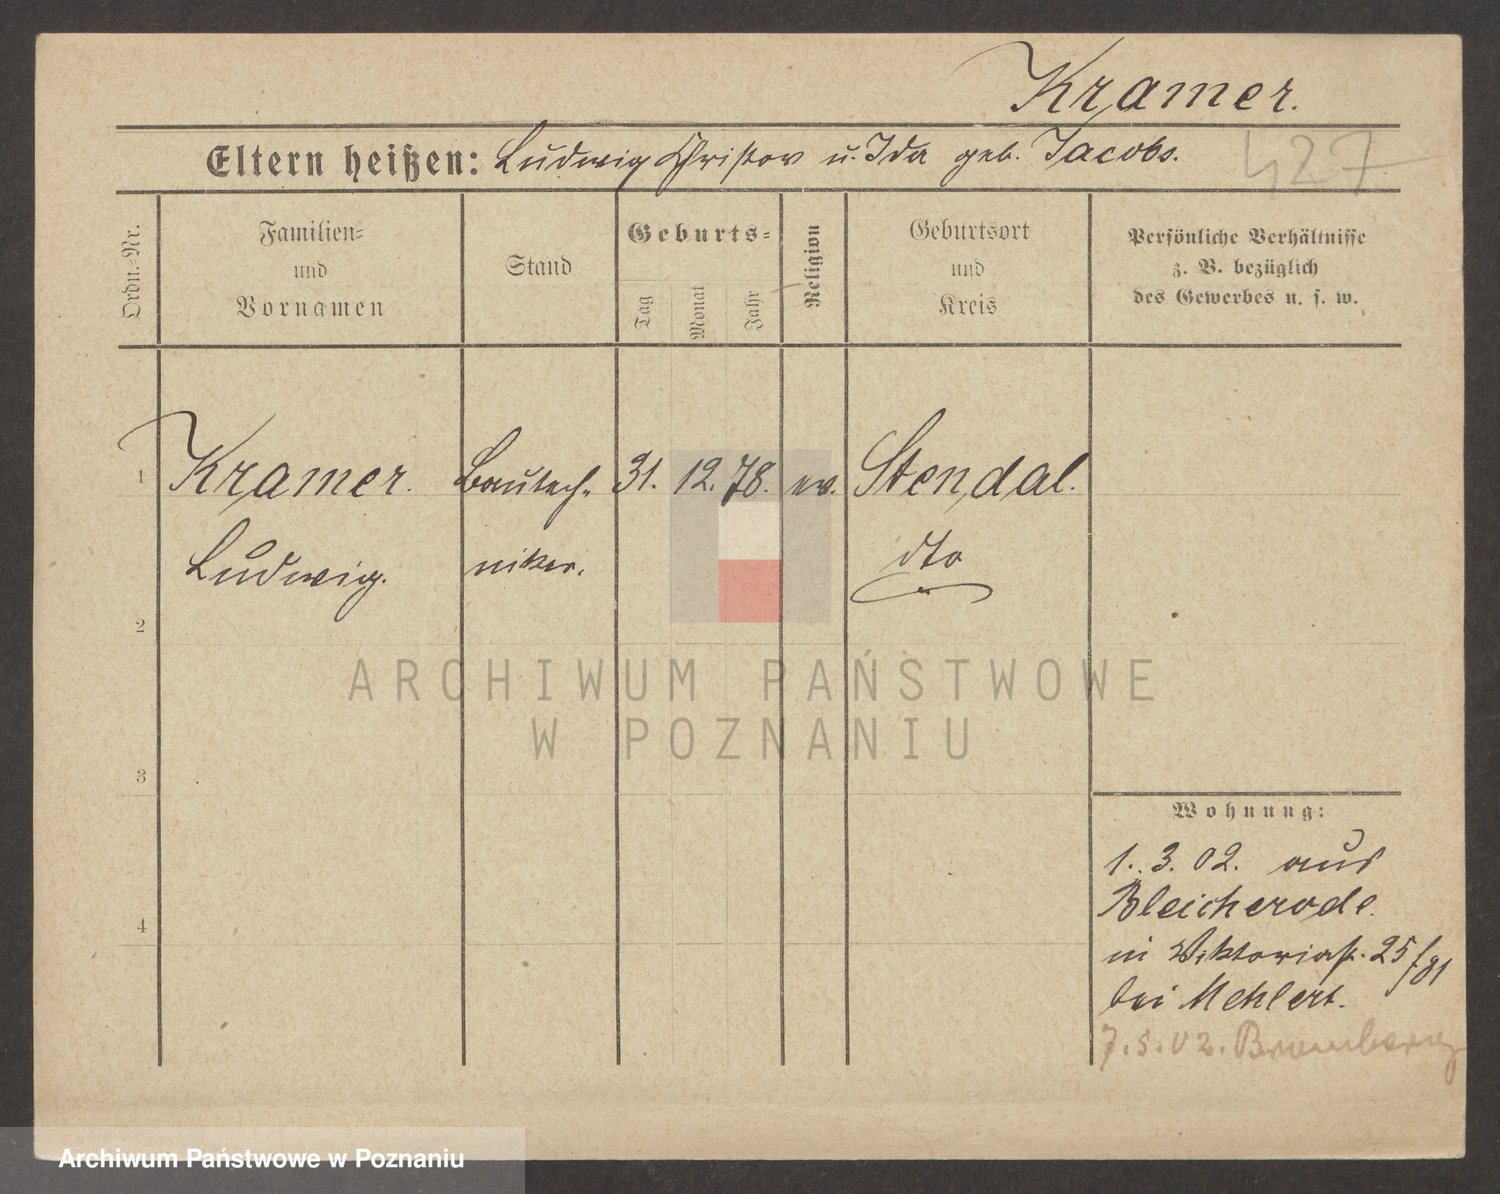 Kramer.
Eltern heißen: Ludwig Christov u. Ida geb. Jacobs.
427
Ordn.-Nr.
Familien-
und
Vornamen
Stand
Geburts-
Tag
Monat
Jahr
Religion
Geburtsort
und
Kreis
Persönliche Verhältnisse
z. B. bezüglich
des Gewerbes u. s. w.
1 Kramer. Bautech- 31. 12. 78. ev. Stendal.
Ludwig. niker. dto
2
ARCHIWUM PAŃSTWOWE
W POZNANIU
3
Wohnung:
1. 3. 02. aus
Bleicherode.
4
in Viktoriast. 25
bei Mehlert.
7. 5. 02. Bromberg
Archiwum Państwowe w Poznaniu